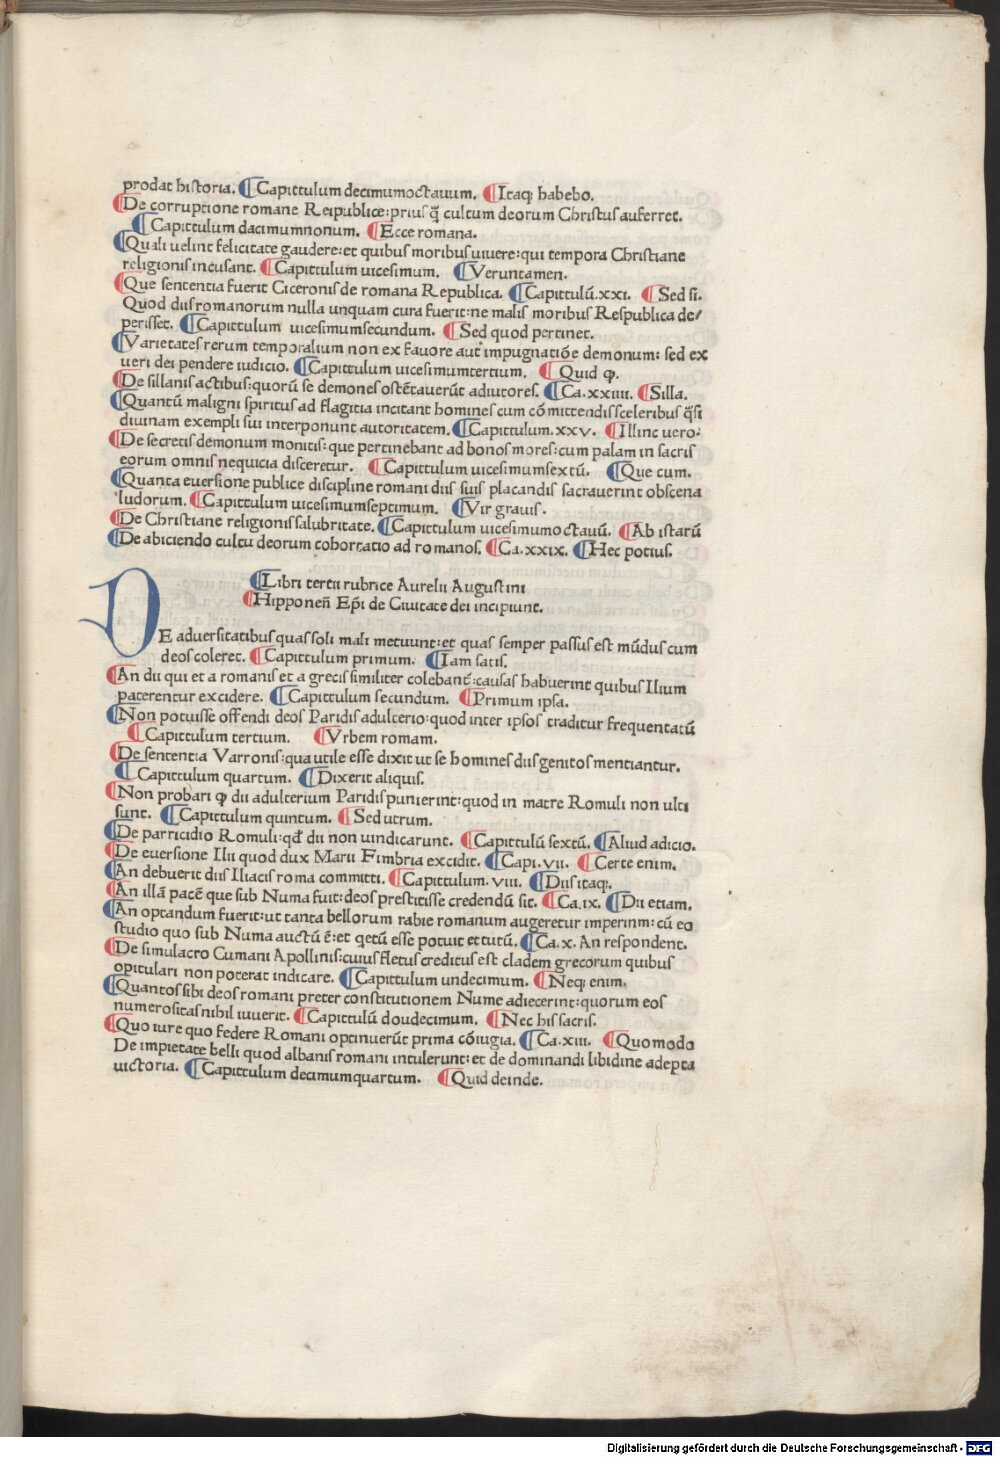 prodat historia. ¶Capittulum decimumoctauum. ¶Itaq; habebo.
¶De corruptione romane Reipublice:prius q̃ cultum deorum Christus auferret.
¶Capittulum dacimumnonum. ¶Ecce romana.
¶Quali uelint felicitate gaudere:et quibus moribus uiuere:qui tempora Christiane
religionis incusant. ¶Capittulum uicesimum. ¶Veruntamen.
¶Que sententia fuerit Ciceronis de romana Republica. ¶Capittulũ.xxi. ¶Sed si.
Quod diis romanorum nulla unquam cura fuerit:ne malis moribus Respublica de/
perisset. ¶Capittulum uicesimumsecundum. ¶Sed quod pertinet.
¶Varietates rerum temporalium non ex fauore aut impugnatiõe demonum: sed ex
ueri dei pendere iudicio. ¶Capittulum uicesimumtertium. ¶Quid ꝙ.
¶De sillanis actibus:quorũ se demones ostẽtauerũt adiutores. ¶Ca.xxiiii. ¶Silla.
¶Quantũ maligni spiritus ad flagitia incitant homines cum cõmittendis sceleribus q̃si
diuinam exempli sui interponunt autoritatem. ¶Capittulum.xxv. ¶Illinc uero:
¶De secretis demonum monitis:que pertinebant ad bonos mores:cum palam in sacris
eorum omnis nequicia disceretur. ¶Capittulum uicesimumsextũ. ¶Que cum.
¶Quanta euersione publice discipline romani diis suis placandis sacrauerint obscena
ludorum. ¶Capittulum uicesimumseptimum. ¶Vir grauis.
¶De Christiane religionis salubritate. ¶Capittulum uicesimumoctauũ. ¶Ab istarũ
¶De abiciendo cultu deorum cohortatio ad romanos. ¶Ca.xxix. ¶Hec potius.
¶Libri tertii rubrice Aurelii Augustini
¶Hipponeñ Ep̃i de Ciuitate dei incipiunt.
DE aduersitatibus quas soli mali metuunt:et quas semper passus est mũdus cum
deos coleret. ¶Capittulum primum. ¶Iam satis.
¶An dii qui et a romanis et a grecis similiter colebant̃:causas habuerint quibus Ilium
paterentur excidere. ¶Capittulum secundum. ¶Primum ipsa.
¶Non potuisse offendi deos Paridis adulterio:quod inter ipsos traditur frequentatũ
¶Capittulum tertium. ¶Vrbem romam.
¶De sententia Varronis:qua utile esse dixit ut se homines diis genitos mentiantur.
¶Capittulum quartum. ¶Dixerit aliquis.
¶Non probari ꝙ dii adulterium Paridis punierint:quod in matre Romuli non ulti
sunt. ¶Capittulum quintum. ¶Sed utrum.
¶De parricidio Romuli:qđ dii non uindicarunt. ¶Capittulũ sextũ. ¶Aliud adicio.
¶De euersione Ilii quod dux Marii Fimbria excidit. ¶Capi.vii. ¶Certe enim.
¶An debuerit diis Iliacis roma committi. ¶Capittulum.viii. ¶Diis itaq;.
¶An illã pacẽ que sub Numa fuit:deos prestitisse credendũ sit. ¶Ca.ix. ¶Dii etiam.
¶An optandum fuerit:ut tanta bellorum rabie romanum augeretur imperinm:cũ eo
studio quo sub Numa auctũ ẽ:et qetũ esse potuit et tutũ. ¶Ca.x. An respondent.
¶De simulacro Cumani Apollinis:cuius fletus creditus est cladem grecorum quibus
opitulari non poterat indicare. ¶Capittulum undecimum. ¶Neq; enim.
¶Quantos sibi deos romani preter constitutionem Nume adiecerint:quorum eos
numerositas nihil iuuerit. ¶Capittulũ doudecimum. ¶Nec his sacris.
¶Quo iure quo federe Romani optinuerũt prima cõiugia. ¶Ca.xiii. ¶Quomodo
De impietate belli quod albanis romani intulerunt:et de dominandi libidine adepta
uictoria. ¶Capittulum decimumquartum. ¶Quid deinde.
Digitalisierung gefördert durch die Deutsche Forschungsgemeinschaft - DFG